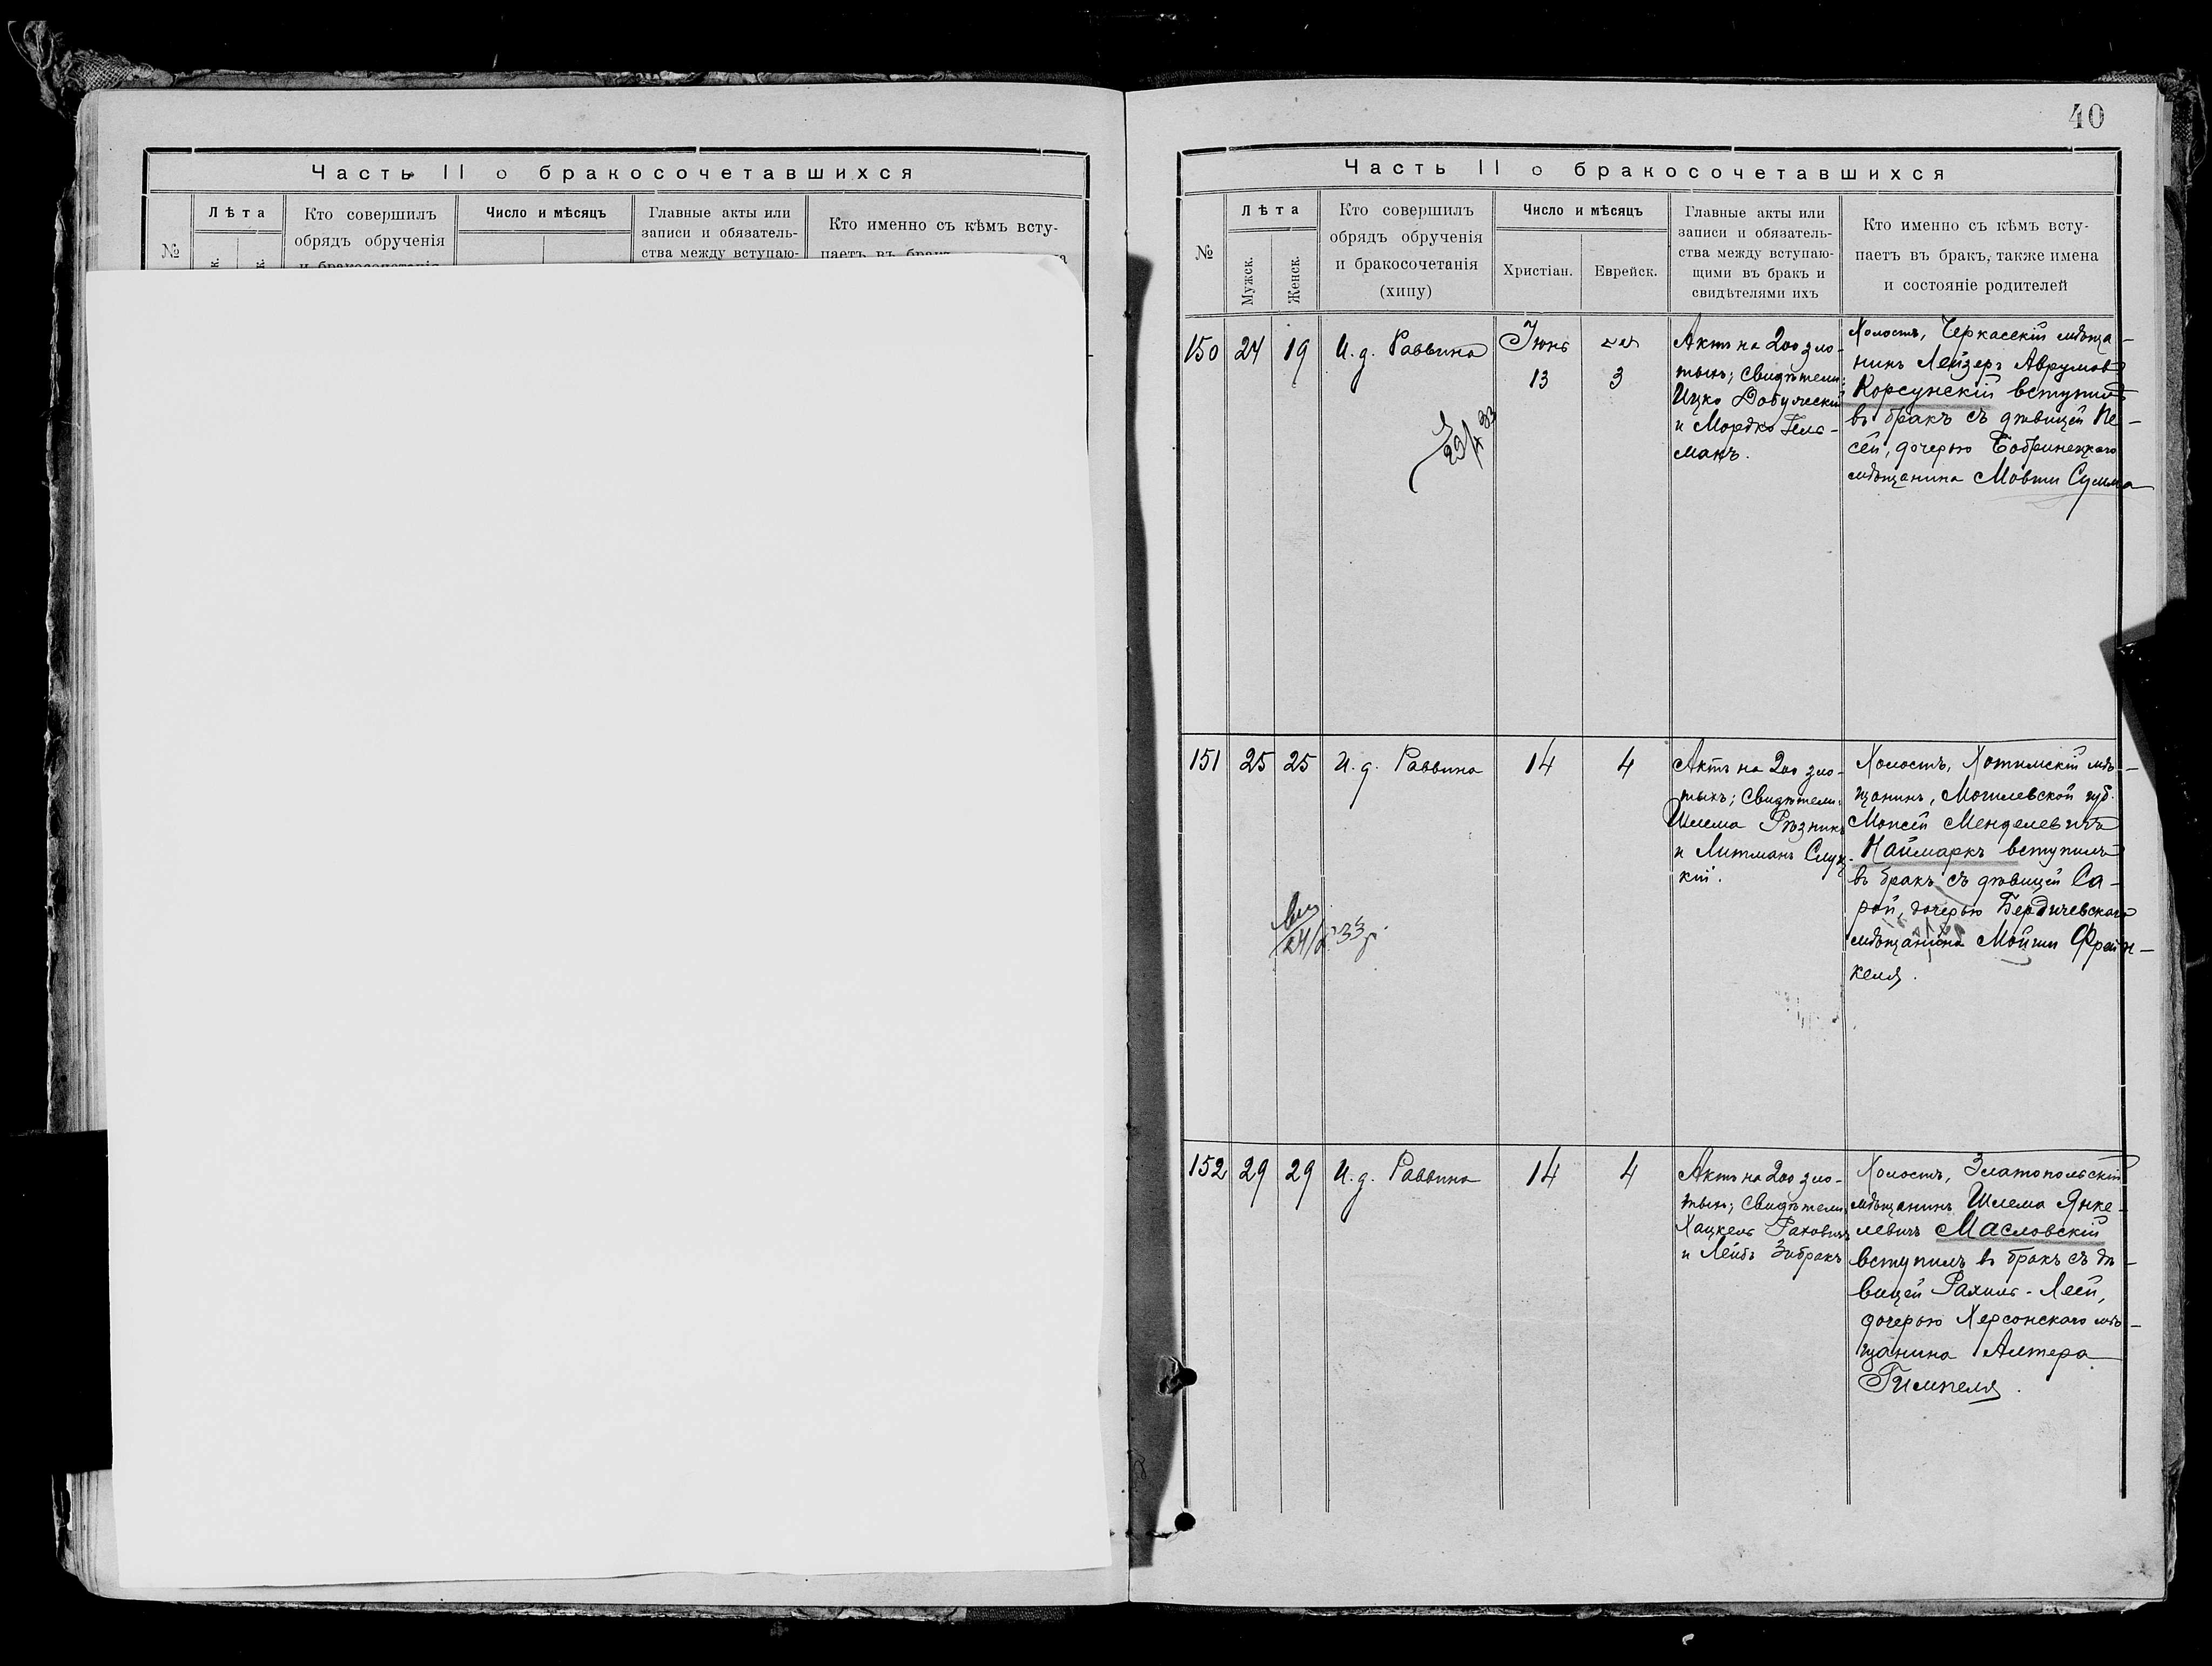 Часть II о бракосочетавшихся
№
Лѣта
Кто совершилъ
обрядъ обрученія
Число и мѣсяцъ
Главные акты или
записи и обязатель-
ства между вступаю-
Кто именно съ кѣмъ всту-
40
Часть II о бракосочетавшихся
№
Лѣта
Мужск.
Женск.
Кто совершилъ
обрядъ обрученія
и бракосочетанія
(хипу)
Число и мѣсяцъ
Христіан.
Еврейск.
Главные акты или
записи и обязатель-
ства между вступаю-
щими въ бракъ и
свидѣтелями ихъ
Кто именно съ кѣмъ всту-
паетъ въ бракъ, также имена
и состояніе родителей
150
24
19
И. д. Раввина
Іюнь
13
3
Актъ на 200 зло-
тыхъ; Свидѣтели:
Ицко
и Мордко Гель-
манъ.
Холостъ, Черкасскій мѣща-
нинъ Лейзеръ Аврумовъ
Корсунскій вступилъ
въ бракъ съ дѣвицей Пе-
сей, дочерью Бобринецкаго
мѣщанина Мовши Сумма
151
25
25
И. д. Раввина
14
4
Актъ на 200 зло-
тыхъ; Свидѣтели:
Шлема Рѣзникъ
и Литманъ Слуц-
кій.
Холостъ, Хотимскій мѣ-
щанинъ, Могилевской губ.
Моисей Менделевичъ
Наймаркъ вступилъ
въ бракъ съ дѣвицей Са-
рой, дочерью Бердичевскаго
мѣщанина Мойши Френ-
келя.
152
29
29
И. д. Раввина
14
4
Актъ на 200 зло-
тыхъ; Свидѣтели:
Хацкель Раковичъ
и Лейбъ Забракъ
Холостъ, Златопольскій
мѣщанинъ Шлема Янке-
левичъ Масловскій
вступилъ въ бракъ съ дѣ-
вицей Рахиль-Леей,
дочерью Херсонскаго мѣ-
щанина Алтера
Гимпеля.